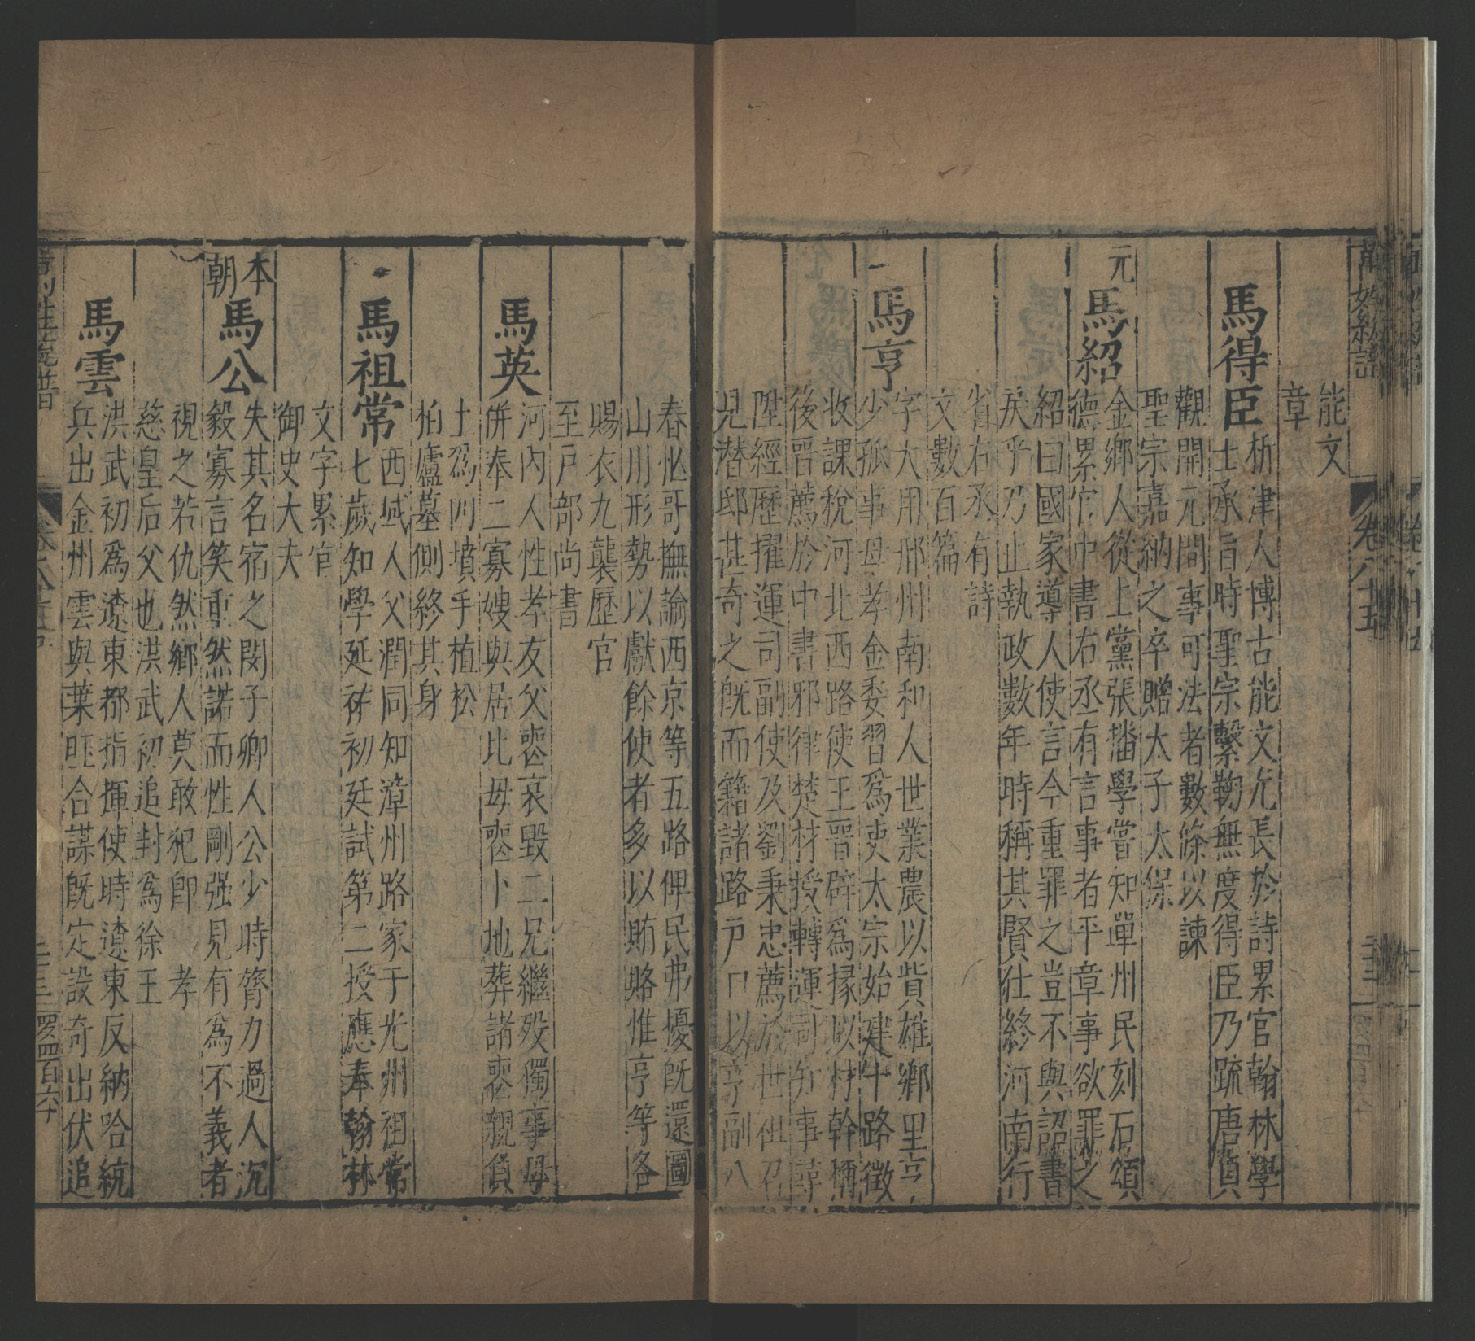 能文
章
馬得臣
析津人博古能文尤長於詩累官翰林學
士承旨時聖宗擊鞠無度得臣乃疏唐貞
觀開元間事可法者數條以諫
聖宗嘉納之卒贈太子太保
元
馬紹
金鄉人從上黨張播學嘗知單州民刻石頌
德累官中書右丞有言事者平章事欲罪之
紹曰國家導人使言今重罪之豈不與詔書
戾乎乃止執政數年時稱其賢仕終河南行
省右丞有詩
文數百篇
馬亨
字大用邢州南和人世業農以貲雄鄉里亨
少孤事母孝金委習爲吏太宗始建十路徵
收課稅河北西路使王晉辟爲掾以材幹稱
後晉薦於中書耶律楚材授轉運司
陞經歷擢運司副使及劉秉忠薦於世祖召
見潛邸甚奇之既而籍諸路戶口以亨副八
春忙哥撫諭西京等五路俾民弗擾既還圖
山川形勢以獻餘使者多以賄賂惟亨等各
賜衣九襲歷官
至戶部尚書
馬英
河內人性孝友父喪哀毀二兄繼歿獨事母
併奉二寡嫂與居比母喪卜地葬諸喪親負
土爲四墳手植松
柏廬墓側終其身
馬祖常
西域人父潤同知漳州路家于光州祖常
七歲知學延祐初廷試第二授應奉翰林
文字累官
御史大夫
本
朝
馬公
失其名宿之閔子鄉人公少時膂力過人沉
毅寡言笑重然諾而性剛强見有爲不義者
視之若仇然鄉人莫敢犯即 孝
慈皇后父也洪武初追封爲徐王
馬雲
洪武初爲遼東都指揮使時遼東反納哈統
兵出金州雲與葉旺合謀既定設奇出伏追